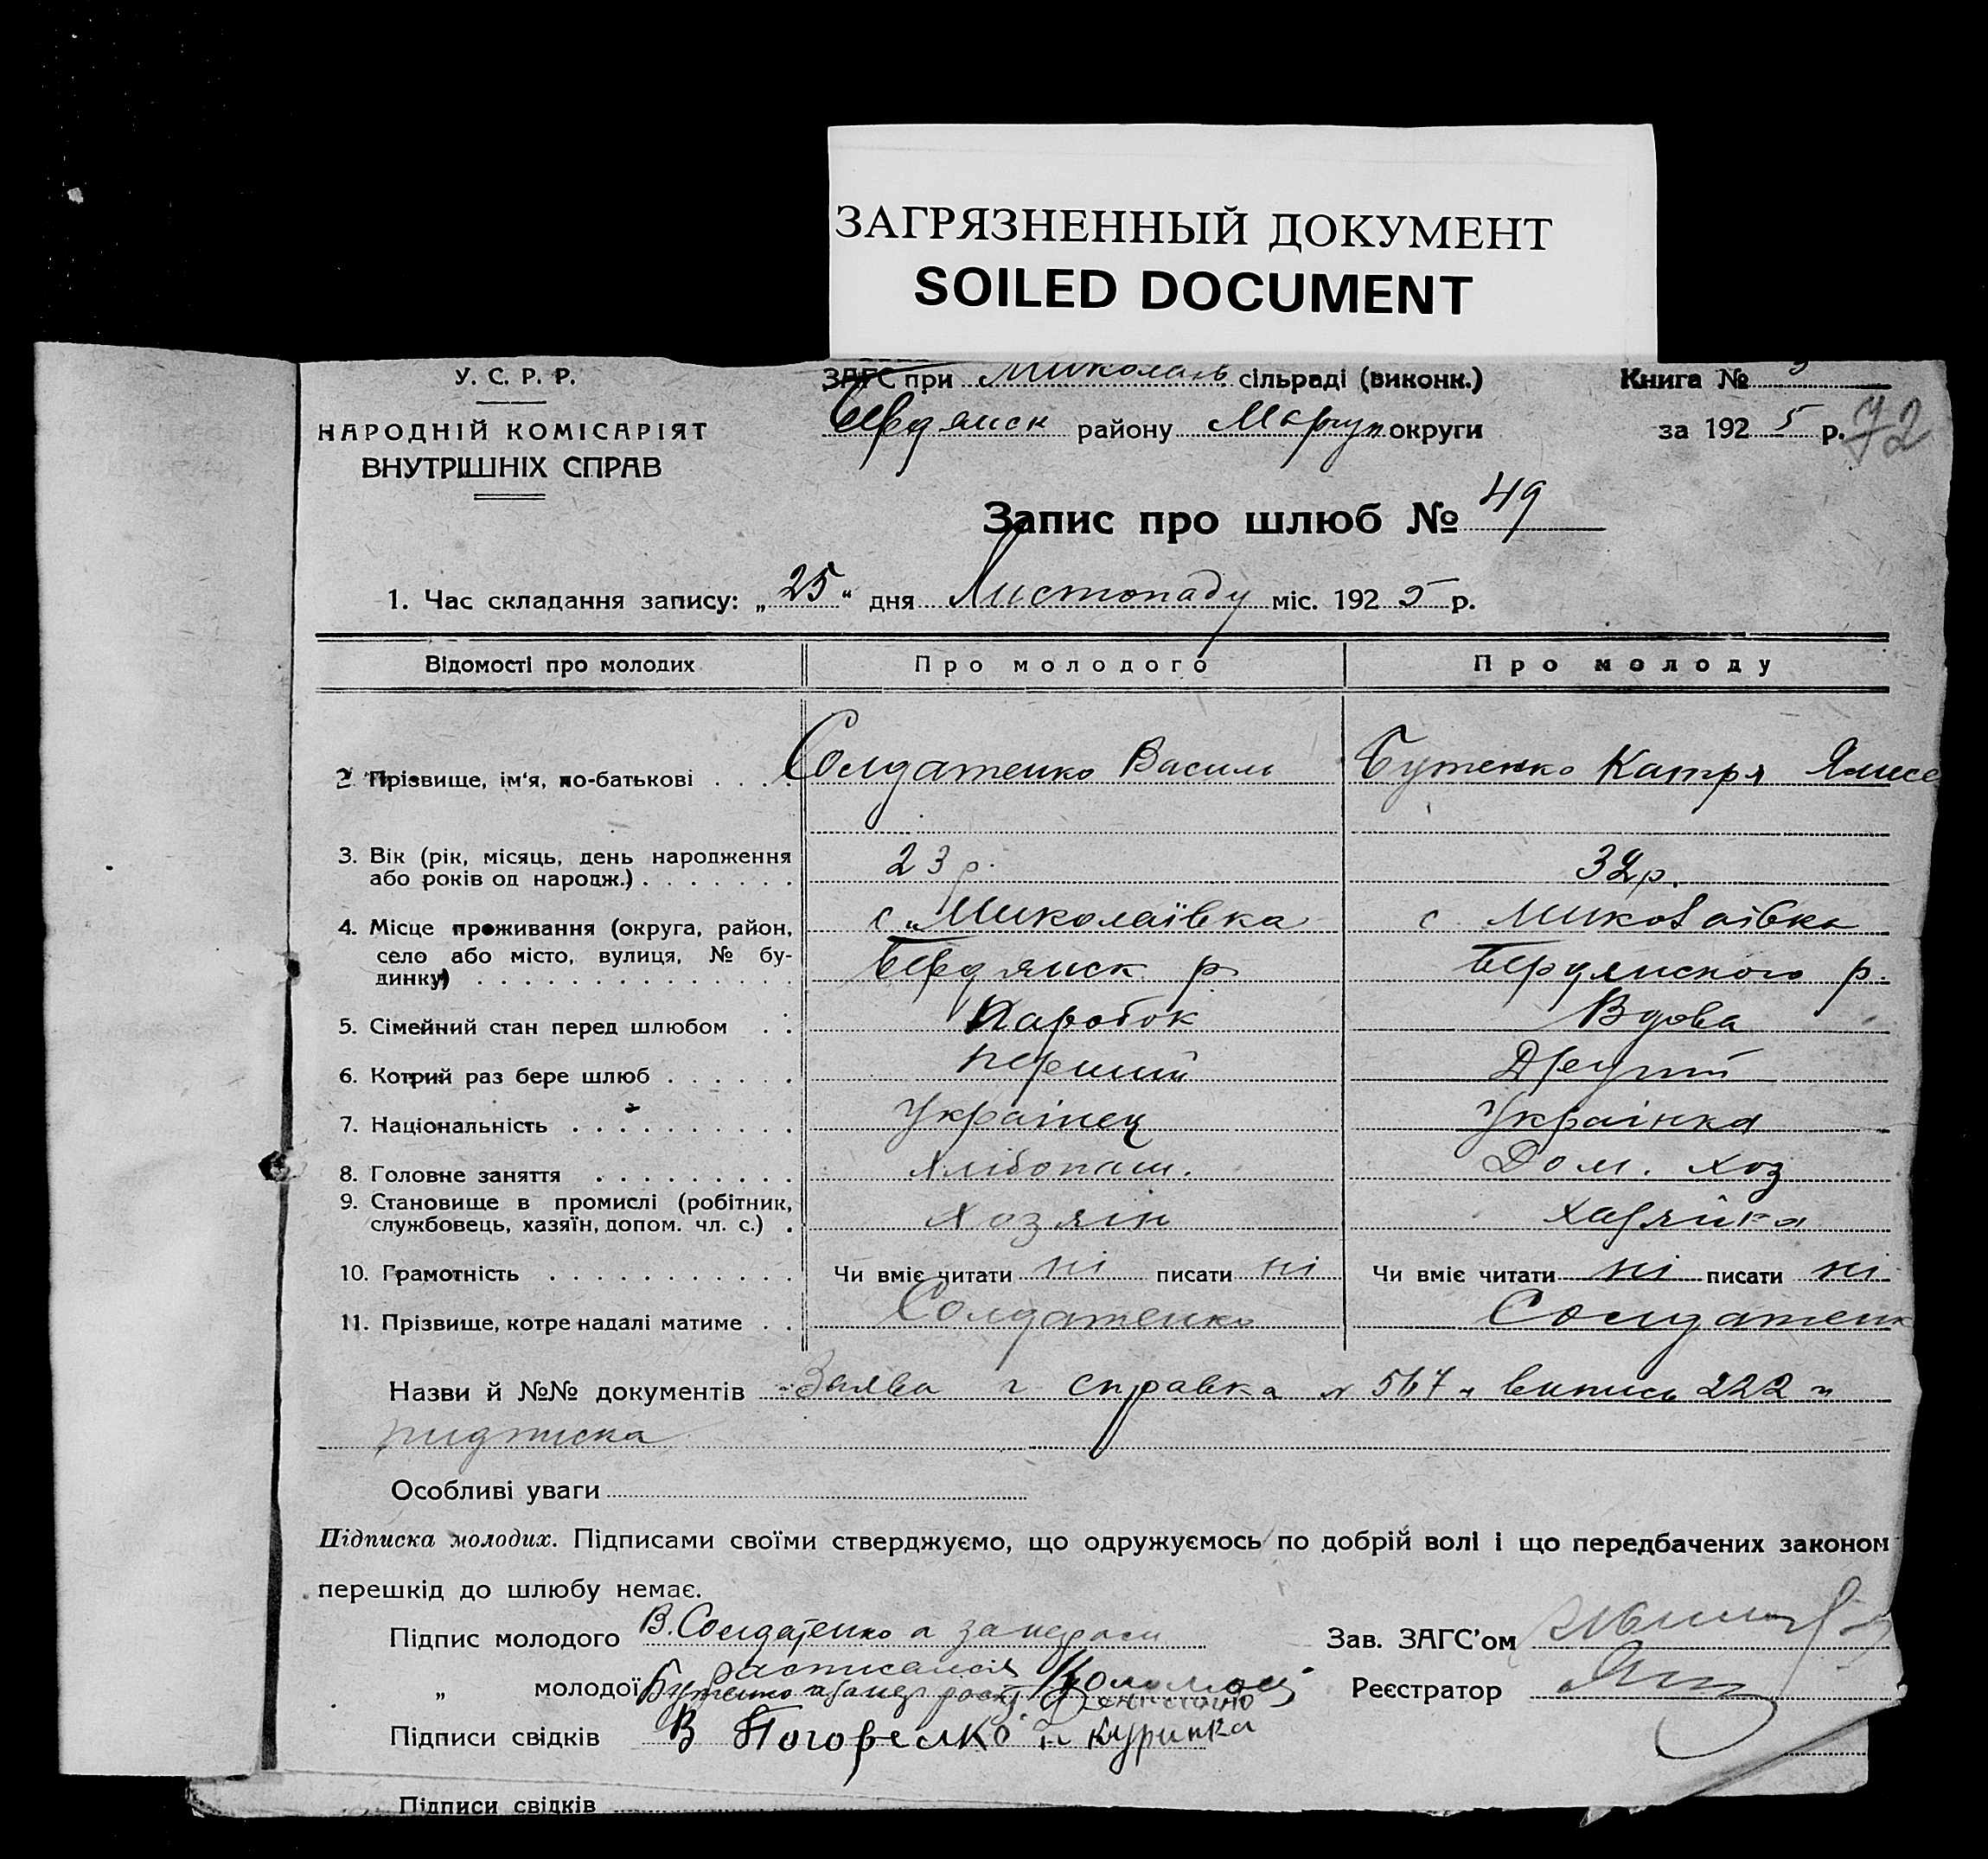 ЗАГРЯЗНЕННЫЙ ДОКУМЕНТ
SOILED DOCUMENT
У. С. Р. Р.
НАРОДНІЙ КОМІСАРІЯТ
ВНУТРІШНІХ СПРАВ
ЗАГС при Миколаїв сільраді (виконк.)
Бердянск району Маріуп округи
Книга №
за 1925 р. 72
Запис про шлюб № 49
1. Час складання запису: „25“ дня Листопаду міс. 1925 р.
Відомості про молодих Про молодого Про молоду
2 Прізвище, ім'я, по-батькові . . . . Солдатенко Василь Бутенко Катря
3. Вік (рік, місяць, день народження
або років од народж.) . . . . . . . 23 р. 32 р.
4. Місце проживання (округа, район, с. Миколаївка с Миколаівка
село або місто, вулиця, № бу-
динку) . . . . . . . . . . . . . . Бердянск р Бердянского р.
5. Сімейний стан перед шлюбом . . Паробок Вдова
6. Котрий раз бере шлюб . . . . . . перший Другий
7. Національність . . . . . . . . . . Українец Украінка
8. Головне заняття . . . . . . . . . Хлібопаш. Дом. хоз
9. Становище в промислі (робітник,
службовець, хазяїн, допом. чл. с.) . Хозяін Хазяйка
10. Грамотність . . . . . . . . . . . Чи вміє читати ні писати ні Чи вміє читати ні писати ні
11. Прізвище, котре надалі матиме . . Солдатенко Солдатенк
Назви й №№ документів Заява справка № 567 випись 222
підписка
Особливі уваги
Підписка молодих. Підписами своїми стверджуємо, що одружуємось по добрій волі і що передбачених законом
перешкід до шлюбу немає.
Підпис молодого В. Солдатенко а за неграм
Зав. ЗАГС'ом
расписался
„ молодої Бутенко
Реєстратор
Підписи свідків В Погорелко Курипка
Підписи свідків